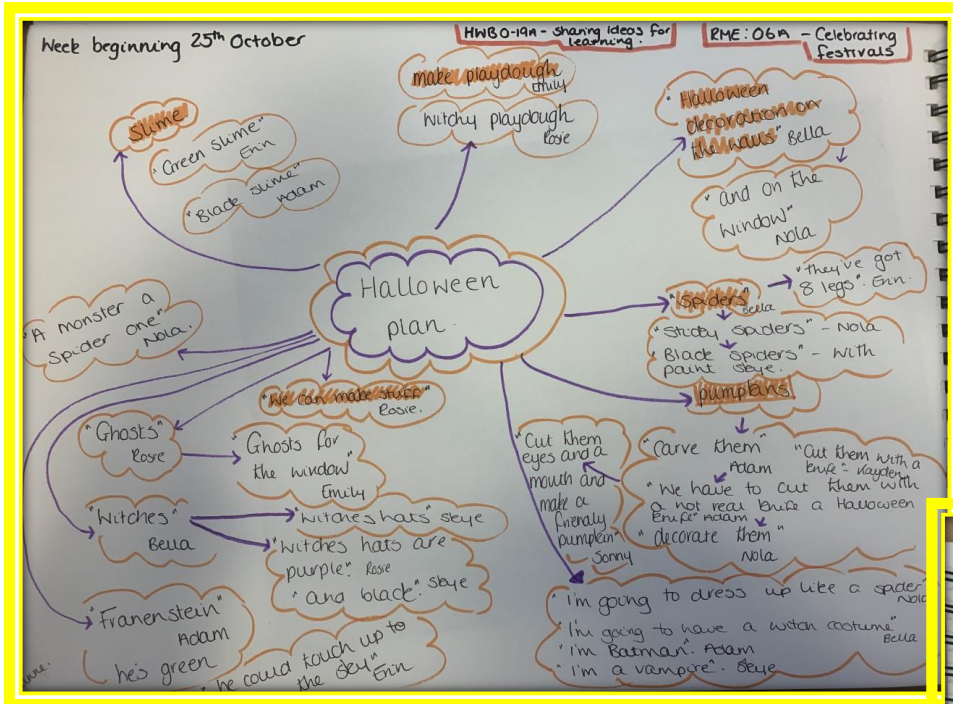 Week beginning 25th October
HWB 0-19A - sharing ideas for
learning.
RME: 06A - Celebrating
festivals
slime
"Green slime"
Erin
"Black slime"
Adam
make playdough
Emily
Witchy playdough
Rosie
"Halloween
decoration on
the walls" Bella
"and on the
window"
Nola
Halloween
plan.
"Spiders"
Bella
"they've got
8 legs". Erin.
"Sticky spiders" - Nola
"Black spiders" - with
paint Skye.
pumpkins
"Carve them"
Adam
"Cut them with a
knife" - Kayden
"We have to cut them with
a not real knife a Halloween
knife" Adam
"decorate them"
Nola
"Cut them
eyes and a
mouth and
make a
friendly
pumpkin"
Sonny
"I'm going to dress up like a spider"
Nola
"I'm going to have a witch costume"
Bella
"I'm Batman". Adam
"I'm a vampire". Skye
"A monster a
spider one"
Nola.
"We can make stuff"
Rosie.
"Ghosts"
Rosie
"Ghosts for
the window"
Emily
"Witches"
Bella
"Witches hats" Skye
"Witches hats are
purple". Rosie
"and black". Skye
"Franenstein"
Adam
he's green
"he could touch up to
the sky"
Erin